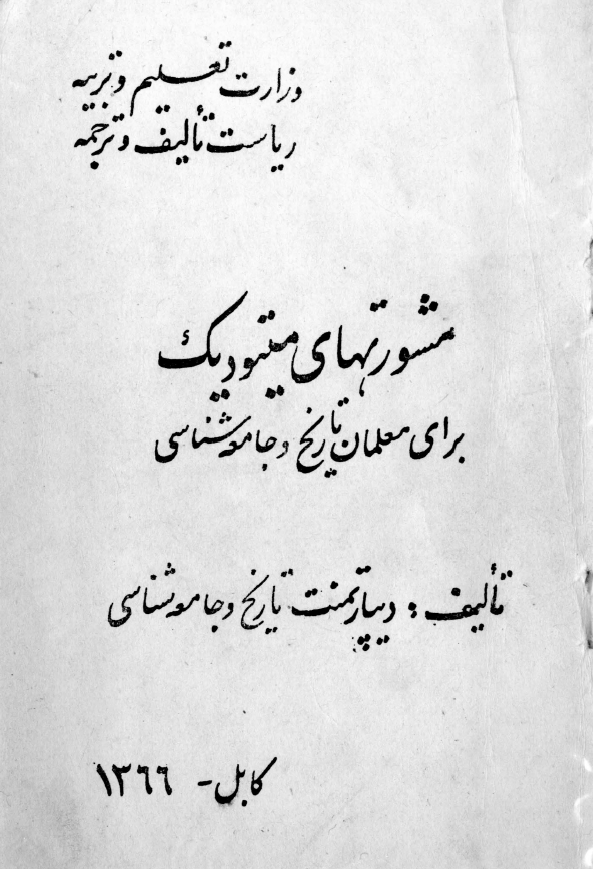 وزارت تعلیم و تربیه
ریاست تألیف و ترجمه
مشورتهای میتودیک
برای معلمان تاریخ و جامعه شناسی
تألیف : دیپارتمنت تاریخ و جامعه شناسی
کابل - ۱۳۶۶